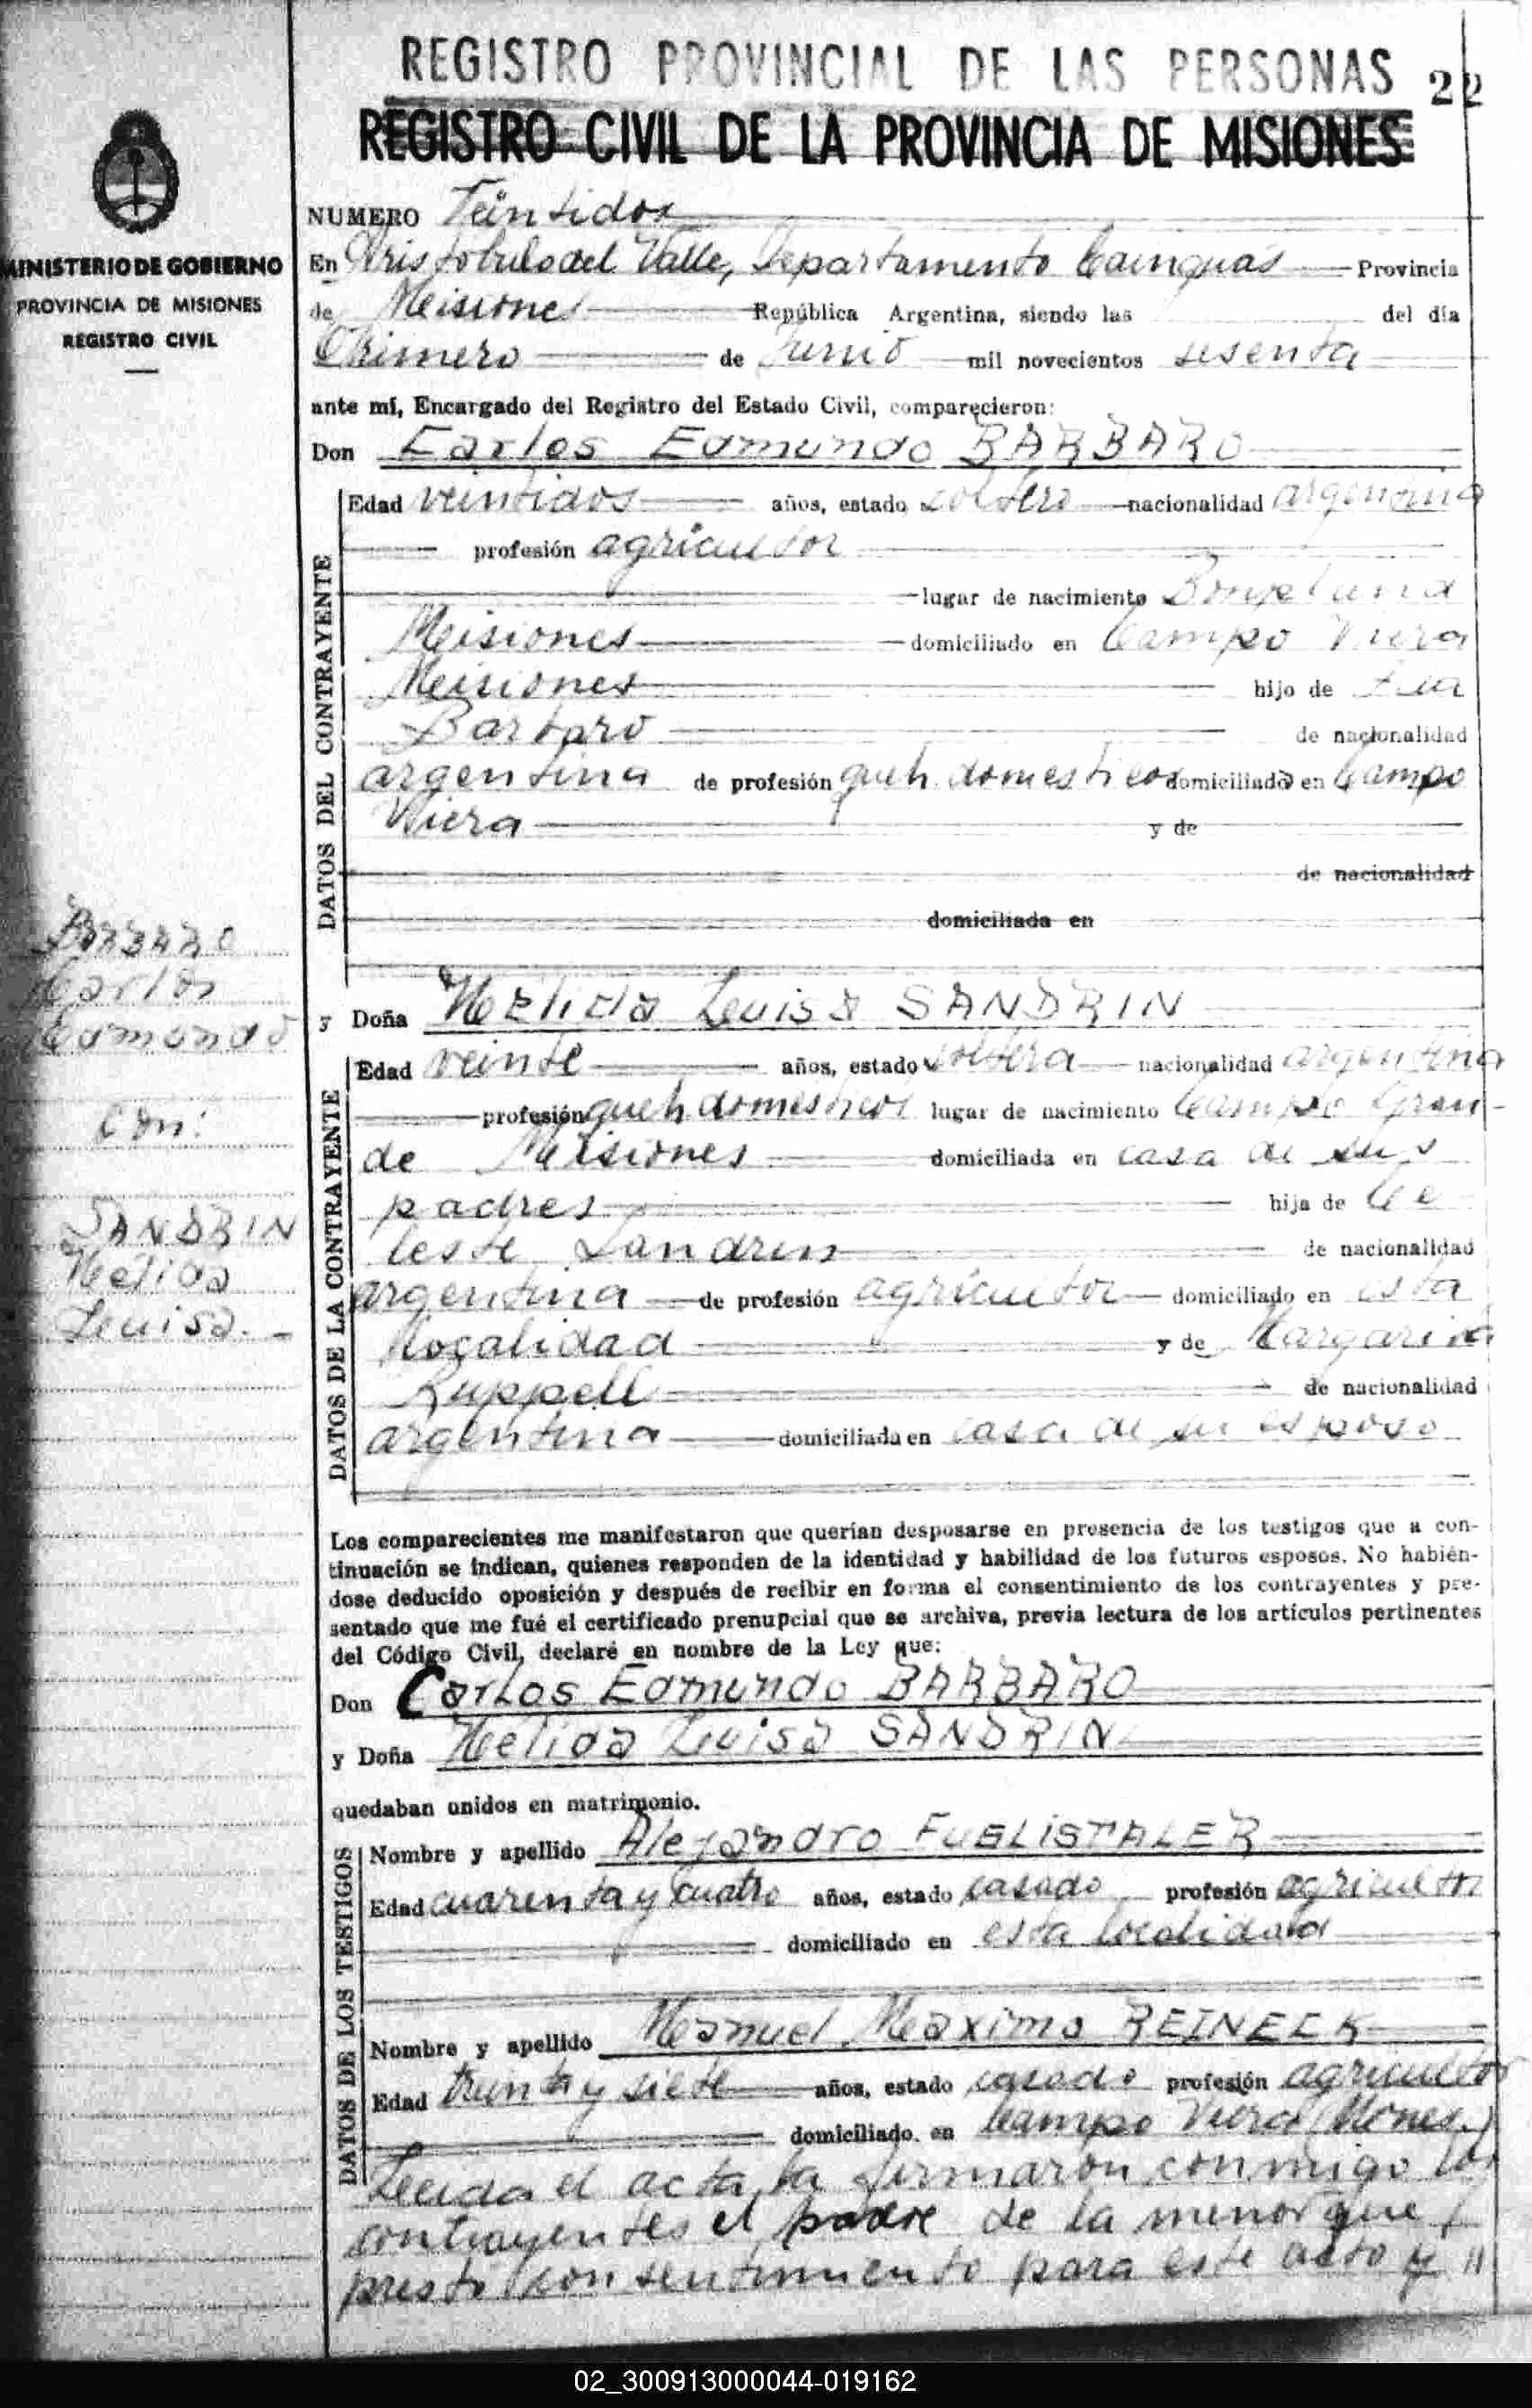 REGISTRO PROVINCIAL DE LAS PERSONAS 22
REGISTRO CIVIL DE LA PROVINCIA DE MISIONES
MINISTERIO DE GOBIERNO
PROVINCIA DE MISIONES
REGISTRO CIVIL
NUMERO Veintidos
En Aristobulo del Valle, Departamento Cainguas Provincia
de Misiones República Argentina, siendo las del día
Primero de Junio mil novecientos sesenta
ante mí, Encargado del Registro del Estado Civil, comparecieron:
Don Carlos Edmundo BARBARO
DATOS DEL CONTRAYENTE
Edad veintidos años, estado soltero nacionalidad argentina
profesión agricultor
lugar de nacimiento Bonpland
Misiones domiciliado en Campo Viera
Misiones hijo de
Barbaro de nacionalidad
argentina de profesión queh. domesticos domiciliado en Campo
Viera y de
de nacionalidad
domiciliada en
BARBARO
Carlos
Edmundo
Con:
SANDRIN
Nélida
Luisa.-
y Doña Nelida Luisa SANDRIN
DATOS DE LA CONTRAYENTE
Edad veinte años, estado soltera nacionalidad argentina
profesión queh. domesticos lugar de nacimiento Campo Gran-
de Misiones domiciliada en casa de sus
padres hija de Ce
leste Sandrin de nacionalidad
argentina de profesión agricultor domiciliado en esta
localidad y de Margarita
Ruppell de nacionalidad
argentina domiciliada en casa de su esposo
Los comparecientes me manifestaron que querían desposarse en presencia de los testigos que a con-
tinuación se indican, quienes responden de la identidad y habilidad de los futuros esposos. No habién-
dose deducido oposición y después de recibir en forma el consentimiento de los contrayentes y pre-
sentado que me fué el certificado prenupcial que se archiva, previa lectura de los artículos pertinentes
del Código Civil, declaré en nombre de la Ley que:
Don Carlos Edmundo BARBARO
y Doña Nelida Luisa SANDRIN
quedaban unidos en matrimonio.
DATOS DE LOS TESTIGOS
Nombre y apellido Alejandro FUGLISTALER
Edad cuarenta y cuatro años, estado casado profesión agricultor
domiciliado en esta localidad
Nombre y apellido Manuel Maximo REINECK
Edad treinta y siete años, estado casado profesión agricultor
domiciliado en Campo Viera (Mones.)
Leida el acta la firmaron conmigo los
contrayentes el padre de la menor que
prestó consentimiento para este acto y //
02_300913000044-019162